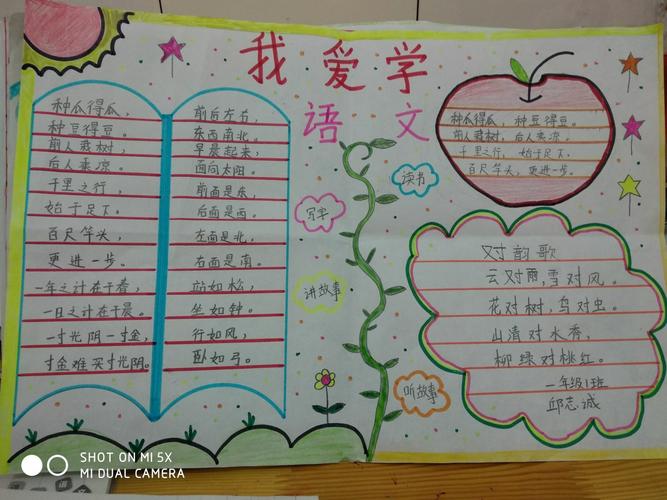 我爱学
语文
种瓜得瓜，
种豆得豆。
前人栽树，
后人乘凉。
千里之行，
始于足下。
百尺竿头，
更进一步。
一年之计在于春，
一日之计在于晨。
一寸光阴一寸金，
寸金难买寸光阴。
前后左右，
东西南北。
早晨起来，
面向太阳。
前面是东，
后面是西。
左面是北，
右面是南。
站如松，
坐如钟。
行如风，
卧如弓。
写字
讲故事
读书
听故事
种瓜得瓜，种豆得豆。
前人栽树，后人乘凉。
千里之行，始于足下。
百尺竿头，更进一步。
对韵歌
云对雨，雪对风。
花对树，鸟对虫。
山清对水秀，
柳绿对桃红。
一年级1班
邱志诚
SHOT ON MI 5X
MI DUAL CAMERA